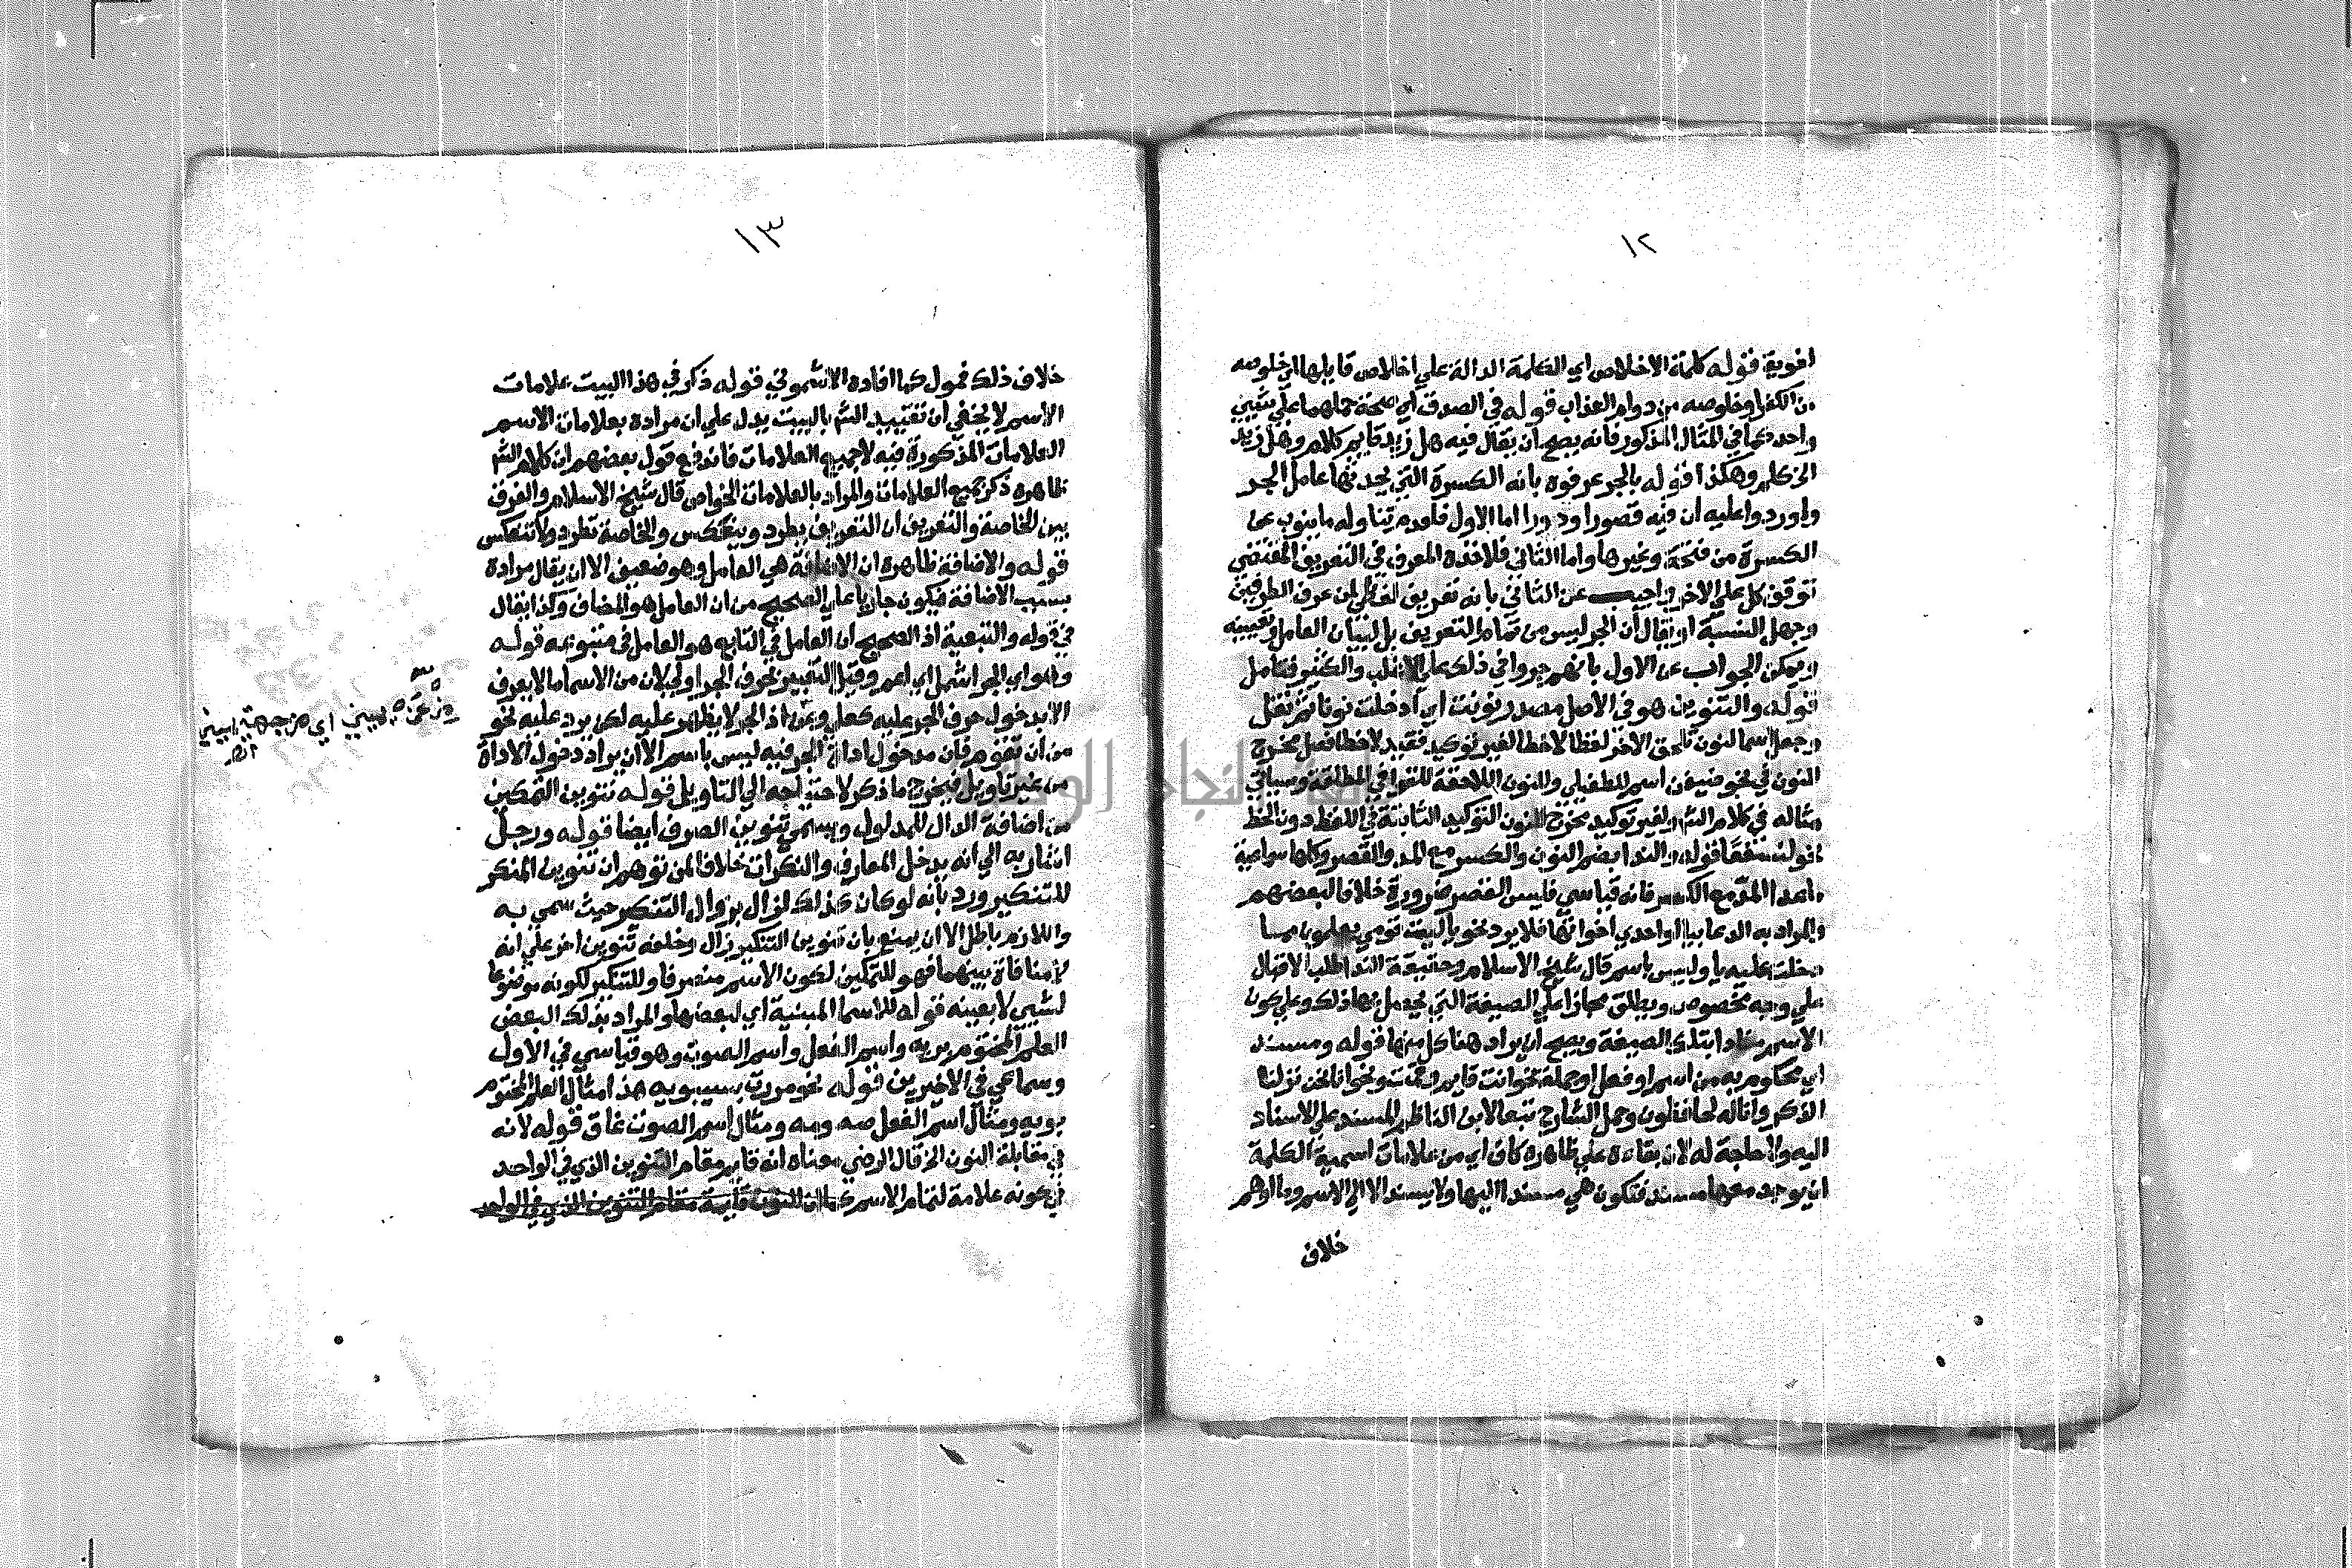 ١٢
افويق قوله كلمة الاخلاص اي الكلمة الدالة علي اخلاص قايلها اي خلوصه
من الكفر او خلوصه من دوام العذاب قوله في الصدق اي صحة حملهما علي شيئين
واحد كما في المثال المذكور فانه يصح ان يقال فيه هل زيد قايم كلام وهل زيد
الخ كلم وهكذا قوله بالجر عرفوه بانه الكسرة التي يحدثها عامل الجر
واوردوا عليه ان فيه قصورا ودورا اما الاول فلعدم تناوله ما ينوب عن
الكسرة من فتحة وغيرها واما الثاني فلاخذه المعرف في التعريف المقتضي
توقف كل علي الاخر واجيب عن الثاني بانه تعريف لفظي لمن عرف الطرفين
وجهل النسبة او يقال ان الجر ليس من تمام التعريف بل لبيان العامل وتعيينه
ويمكن الجواب عن الاول بانهم جروا في ذلك علي الاغلب والكثير فتامل
قوله والتنوين هو في الاصل مصدر نونت اي ادخلت نونا ثم نقل
وجعل اسما لنون تلحق الاخر لفظا لا خطا لغير توكيد فقيد لا خطا فصل مخرج
النون في نحو ضيفن اسم للطفيلي والنون اللاحقة للقوافي المطلقة وسياتي
مثاله في كلام الشم ولغير توكيد مخرج لنون التوكيد الثابتة في اللفظ دون الخط
نحو لنسفعا قوله والندا بضم النون والكسر مع المد والقصر وكلها سماعية
ماعدا المد مع الكسر فانه قياسي فليس القصر ضرورة خلافا لبعضهم
والمراد به الدعا بيا او احدي اخواتها فلا يرد نحو ياليت قومي يعلمون مما
دخلت عليه يا وليس باسم قال شيخ الاسلام وحقيقة الندا طلب الاقبال
علي وجه مخصوص ويطلق مجازا علي الصيغة التي يحصل بها ذلك وعلي كون
الاسم منادا بتلك الصيغة ويصح ان يراد هنا كل منها قوله ومسند
اي محكوم به من اسم او فعل او جملة نحو انت قايم وقمت ونحو انا نحن نزلنا
الذكر وانا له لحافظون وحمل الشارح تبعا لابن الناظم للمسند علي الاسناد
اليه ولا حاجة له لان بقاءه علي ظاهره كاف اي من علامات اسمية الكلمة
ان يوجد معها مسند فتكون هي مسندا اليها ولا يسند الا الي الاسم وما اوهم
خلاف
١٣
خلاف ذلك فمول كما افاده الاشموني قوله ذكر في هذا البيت علامات
الاسم لا يخفي ان تقييد الشم بالبيت يدل علي ان مراده بعلامات الاسم
العلامات المذكورة فيه لا جميع العلامات فاندفع قول بعضهم ان كلام الشم
ظاهره ذكر جميع العلامات والمراد بالعلامات الخواص قال شيخ الاسلام والفرق
بين الخاصة والتعريف ان التعريف يطرد وينعكس والخاصة تطرد ولا تنعكس
قوله والاضافة ظاهره ان الاضافة هي العامل وهو ضعيف الا ان يقال مراده
بسبب الاضافة فيكون جاريا علي الصحيح من ان العامل هو المضاف وكذا يقال
في قوله والتبعية اذ الصحيح ان العامل في التابع هو العامل في متبوعه قوله
وهو اي الجر اشمل اي اعم وقيل التعبير بحرف الجر اولي لان من الاسما ما لا يعرف
الا بدخول حرف الجر عليه كعلي وعن اذ الجر لا يظهر عليه لكن يرد عليه نحو
من ان تقوم فان مدخول اداة الجر فيه ليس باسم الا ان يراد دخول الاداة
من غير تاويل فيخرج ما ذكر لاحتياجه الي التاويل قوله تنوين التمكين
من اضافة الدال للمدلول ويسمي تنوين الصرف ايضا قوله ورجل
اشار به الي انه يدخل المعارف والنكرات خلافا لمن توهم ان تنوين المنكر
للتنكير ورد بانه لو كان كذلك لزال بزوال التنكير حيث سمي به
واللازم باطل الا ان يمنع بان تنوين التنكير زال وخلفه تنوين اخر علي انه
لا منافاة بينهما فهو للتمكين لكون الاسم منصرفا وللتنكير لكونه موضوعا
لشيي لا بعينه قوله للاسما المبنية اي لبعضها والمراد بذلك البعض
العلم المختوم بويه واسم الفعل واسم الصوت وهو قياسي في الاول
وسماعي في الاخيرين قوله نحو مررت بسيبويه هذا مثال العلم المختوم
بويه ومثال اسم الفعل صه ومه ومثال اسم الصوت غاق قوله لانه
في مقابلة النون الخ قال الرضي معناه انه قايم مقام التنوين الذي في الواحد
في كونه علامة لتمام الاسم كما ان النون قايمة مقام التنوين الذي في الواحد
يميني اي من جهة يميني